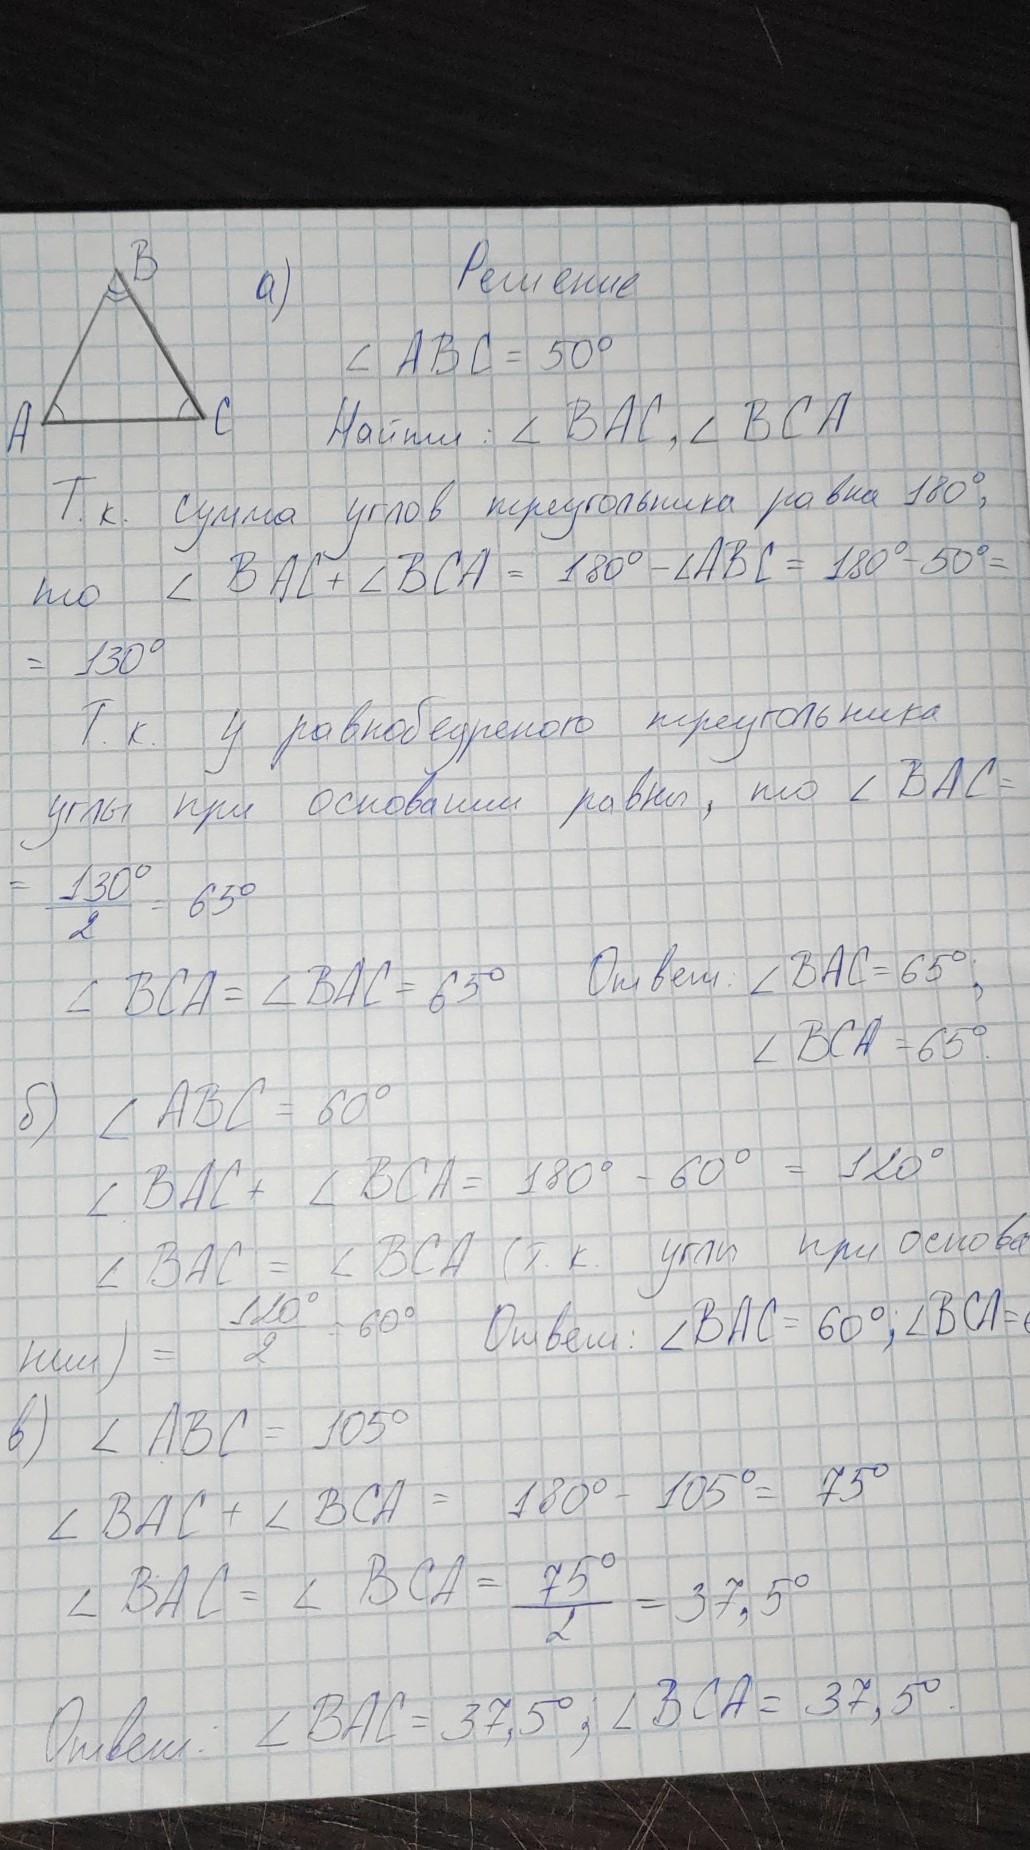 B
а) Решение
∠ ABC = 50°
A C
Найти: ∠ BAC, ∠ BCA
Т.к. сумма углов треугольника равна 180°,
то ∠ BAC + ∠ BCA = 180° - ∠ABC = 180° - 50° =
= 130°
Т.к. у равнобедреного треугольника
углы при основании равны, то ∠ BAC =
= 130°/2 = 65°
∠ BCA = ∠ BAC = 65° Ответ: ∠ BAC = 65°;
∠ BCA = 65°.
б) ∠ ABC = 60°
∠ BAC + ∠ BCA = 180° - 60° = 120°
∠ BAC = ∠ BCA (т.к. углы при основа
нии) = 120°/2 = 60° Ответ: ∠BAC = 60°; ∠BCA =
в) ∠ ABC = 105°
∠ BAC + ∠ BCA = 180° - 105° = 75°
∠ BAC = ∠ BCA = 75°/2 = 37,5°
Ответ: ∠ BAC = 37,5°; ∠ BCA = 37,5°.